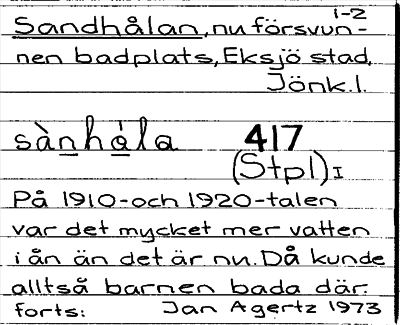 1-2
Sandhålan, nu försvun-
nen badplats, Eksjö stad,
Jönk.l.
sànhá̱la 417
(Stpl) I
På 1910-och 1920-talen
var det mycket mer vatten
i ån än det är nu. Då kunde
alltså barnen bada där.
forts: Jan Agertz 1973